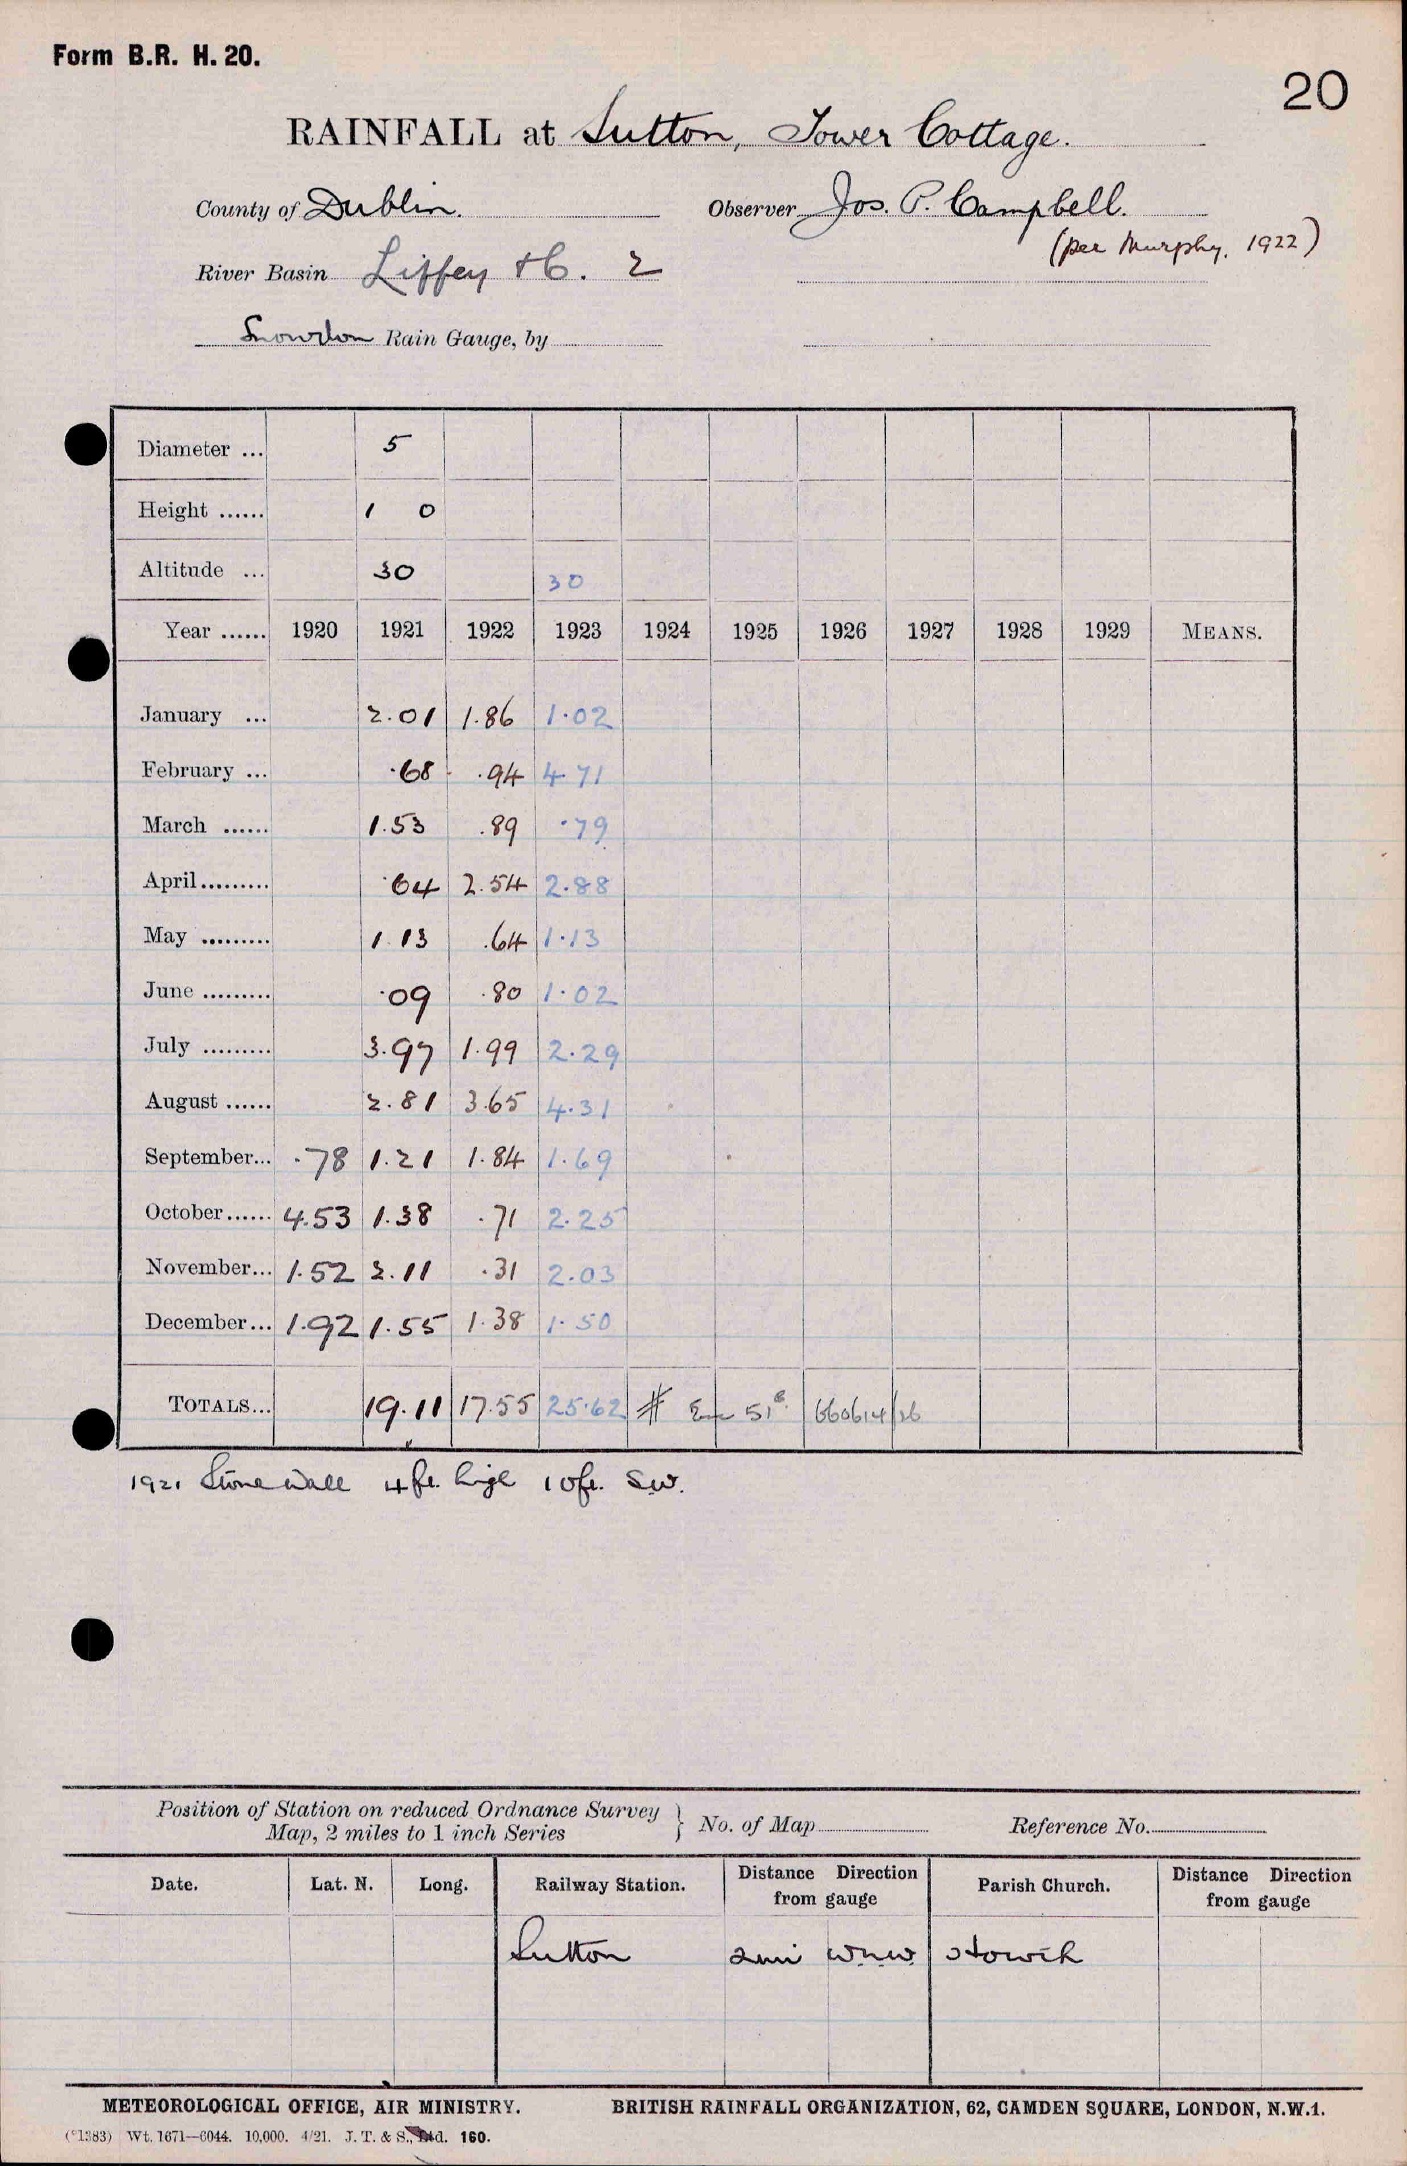 Form B.R. H. 20.
20
RAINFALL at Sutton, Tower Cottage.
County of Dublin. Observer Jos. P. Campbell.
(per Murphy, 1922)
River Basin Liffey &C. 2
Snowdon Rain Gauge, by
Diameter ... 5
Height ...... 1 0
Altitude ... 30 30
Year ...... 1920 1921 1922 1923 1924 1925 1926 1927 1928 1929 MEANS.
January ... 2.01 1.86 1.02
February ... .68 .94 4.71
March ...... 1.53 .89 .79
April......... .64 2.54 2.88
May ......... 1.13 .64 1.13
June ......... .09 .80 1.02
July ......... 3.97 1.99 2.29
August ...... 2.81 3.65 4.31
September... .78 1.21 1.84 1.69
October...... 4.53 1.38 .71 2.25
November... 1.52 2.11 .31 2.03
December... 1.92 1.55 1.38 1.50
TOTALS... 19.11 17.55 25.62 # 51 660614/26
1921 Stone wall 4 ft. high 10 ft. SW.
Position of Station on reduced Ordnance Survey } No. of Map Reference No.
Map, 2 miles to 1 inch Series
Date. Lat. N. Long. Railway Station. Distance Direction from gauge Parish Church. Distance Direction from gauge
Sutton 2mi WNW Howth
METEOROLOGICAL OFFICE, AIR MINISTRY. BRITISH RAINFALL ORGANIZATION, 62, CAMDEN SQUARE, LONDON, N.W.1.
Wt. 1671—6044. 10,000. 4/21. J. T. & S., Ltd. 160.